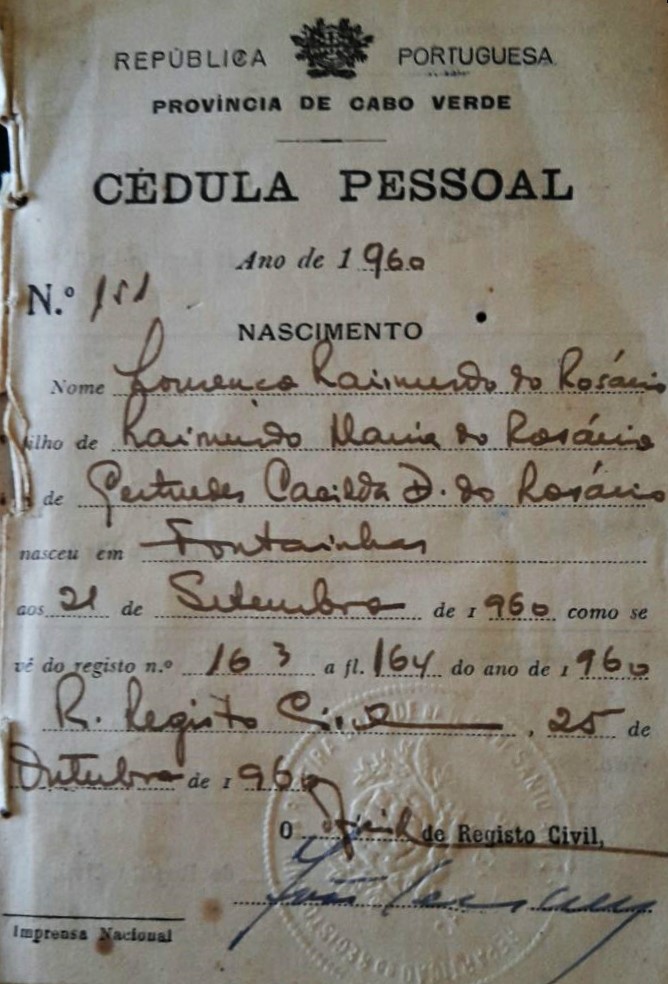 REPÚBLICA PORTUGUESA
PROVÍNCIA DE CABO VERDE
CÉDULA PESSOAL
Ano de 1960
N.º 151
NASCIMENTO
Nome Lourenço Raimundo do Rosário
filho de Raimundo Maria do Rosário
de Gertrudes Cacilda D. do Rosário
nasceu em Fontainhas
aos 21 de Setembro de 1960 como se
vê do registo n.º 163 a fl. 164 do ano de 1960
R. Registo Civil, 25 de
Outubro de 1960
O de Registo Civil,
João
Imprensa Nacional